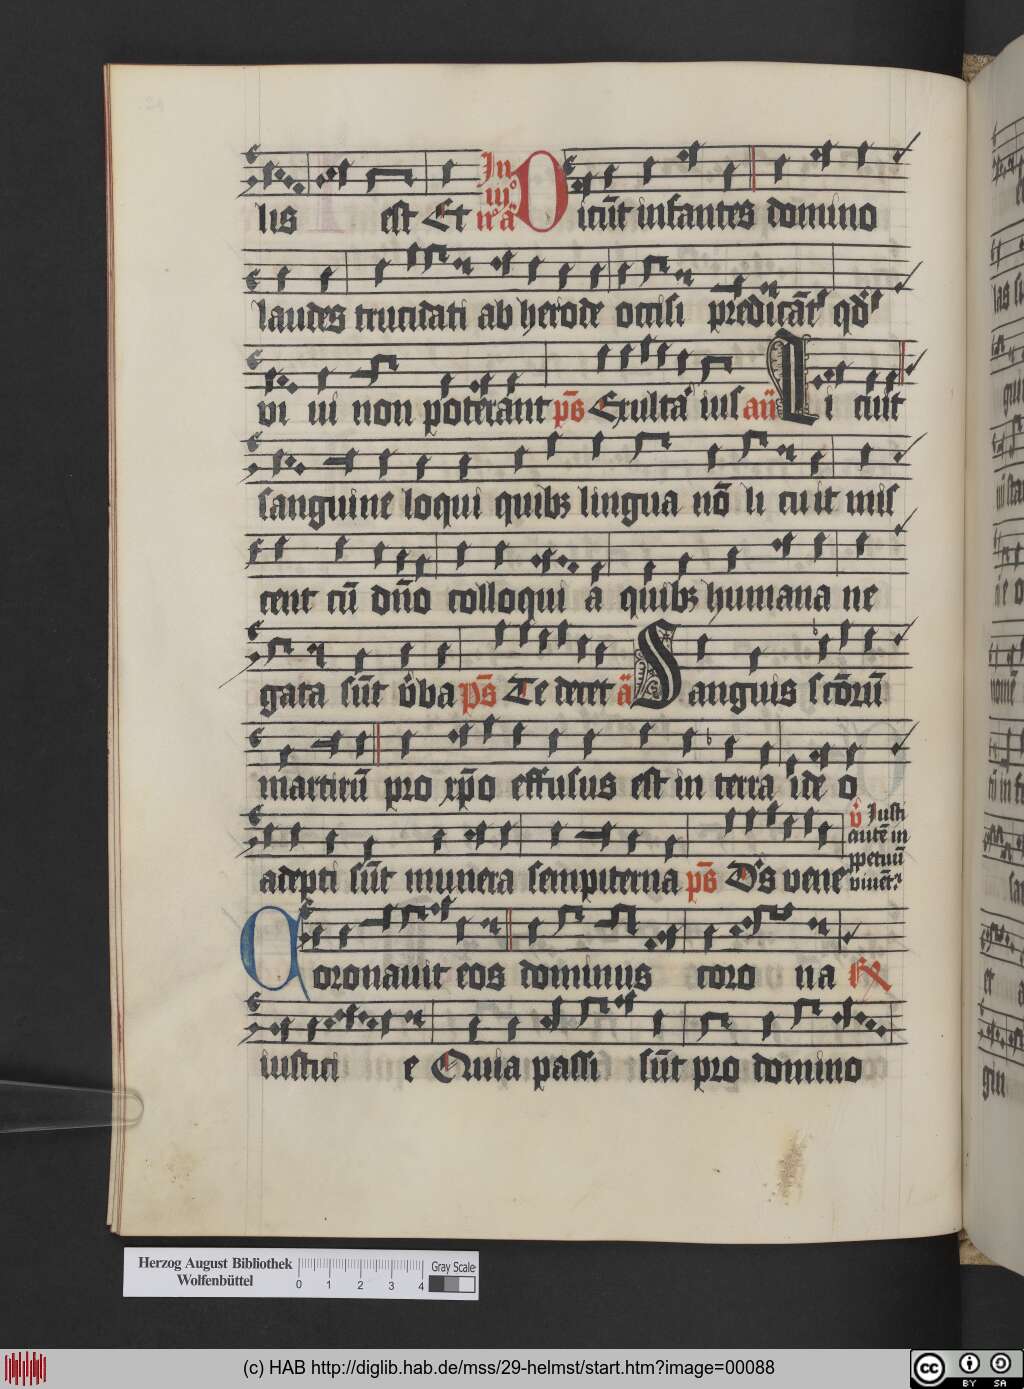 lis est Et In iijo no an Dicūt infantes domino
laudes trucidati ab herode occisi predicāt qd
vi ui non poterant ps Exulta ius an Li cuit
sanguine loqui quibz lingua nō li cuit mis
cent cū dn̄o colloqui a quibz humana ne
gata sūt v̄ba ps̄ Te decet ā Sanguis sc̄orū
martirū pro xp̄o effusus est in terra ide o
adepti sūt munera sempiterna ps Ds vene v̄ Justi autē in ppetuū vivēt
Coronavit eos dominus coro na R
iustici e Quia passi sūt pro domino
Herzog August Bibliothek
Wolfenbüttel
0 1 2 3 4
Gray Scale
(c) HAB http://diglib.hab.de/mss/29-helmst/start.htm?image=00088
cc BY SA